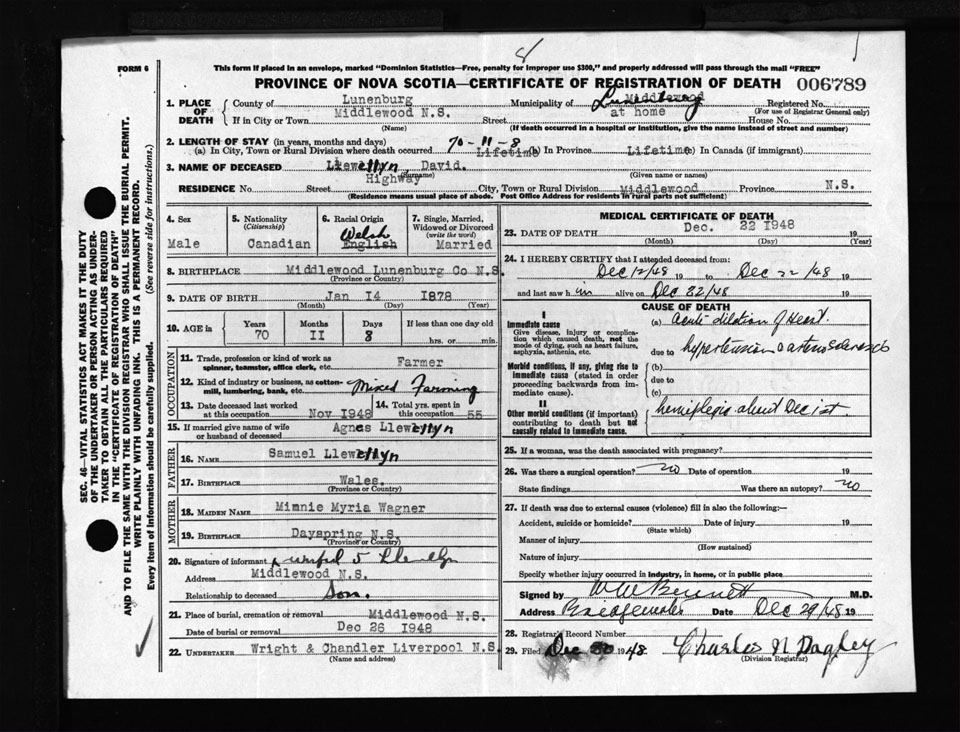 8
FORM 6
This form if placed in an envelope, marked "Dominion Statistics—Free, penalty for improper use $300," and properly addressed will pass through the mail "FREE"
PROVINCE OF NOVA SCOTIA—CERTIFICATE OF REGISTRATION OF DEATH 006789
1. PLACE OF DEATH County of Lunenburg Municipality of Middlewood Lunenburg Registered No.
(For use of Registrar General only)
If in City or Town Middlewood N.S. Street at home House No.
(Name) (If death occurred in a hospital or institution, give the name instead of street and number)
2. LENGTH OF STAY (in years, months and days) 70-11-8
(a) In City, Town or Rural Division where death occurred Lifetime (b) In Province Lifetime (c) In Canada (if immigrant)
3. NAME OF DECEASED Llewellyn David.
(Surname) (Given name or names)
RESIDENCE No. Street Highway City, Town or Rural Division Middlewood Province N.S.
(Residence means usual place of abode. Post Office Address for residents in rural parts not sufficient)
4. Sex
Male
5. Nationality
(Citizenship)
Canadian
6. Racial Origin
Welsh
English
7. Single, Married, Widowed or Divorced
(write the word)
Married
8. BIRTHPLACE Middlewood Lunenburg Co N.S.
(Province or Country)
9. DATE OF BIRTH Jan 14 1878
(Month) (Day) (Year)
10. AGE in Years Months Days If less than one day old
70 11 8 hrs. or min.
OCCUPATION
11. Trade, profession or kind of work as spinner, teamster, office clerk, etc. Farmer
12. Kind of industry or business, as cotton-mill, lumbering, bank, etc. Mixed Farming
13. Date deceased last worked at this occupation. Nov 1948
14. Total yrs. spent in this occupation. 55
15. If married give name of wife or husband of deceased Agnes Llewellyn
FATHER
16. NAME Samuel Llewellyn
17. BIRTHPLACE Wales.
(Province or Country)
MOTHER
18. MAIDEN NAME Minnie Myria Wagner
19. BIRTHPLACE Dayspring N.S.
(Province or Country)
20. Signature of informant
Address Middlewood N.S.
Relationship to deceased Son.
21. Place of burial, cremation or removal Middlewood N.S.
Date of burial or removal Dec 26 1948
22. UNDERTAKER Wright & Chandler Liverpool N.S.
(Name and address)
MEDICAL CERTIFICATE OF DEATH
23. DATE OF DEATH Dec. 22 1948 19
(Month) (Day) (Year)
24. I HEREBY CERTIFY that I attended deceased from:
Dec 12/48 19 to Dec 22/48 19
and last saw h im alive on Dec 22/48 19
CAUSE OF DEATH
I
Immediate cause
Give disease, injury or complication which caused death, not the mode of dying, such as heart failure, asphyxia, asthenia, etc.
(a) Acute dilation of Heart.
due to hypertension
Morbid conditions, if any, giving rise to immediate cause (stated in order proceeding backwards from immediate cause).
(b)
due to
(c)
II
Other morbid conditions (if important) contributing to death but not causally related to immediate cause.
hemiplegia about Dec 1st
25. If a woman, was the death associated with pregnancy?
26. Was there a surgical operation? no Date of operation 19
State findings Was there an autopsy? no
27. If death was due to external causes (violence) fill in also the following:—
Accident, suicide or homicide? Date of injury 19
(State which)
Manner of injury
(How sustained)
Nature of injury
Specify whether injury occurred in industry, in home, or in public place
Signed by Bennett M.D.
Address Bridgewater Date Dec 29/48 19
28. Registrar's Record Number
29. Filed Dec 30 1948 Charles N Dagley
(Division Registrar)
SEC. 46—VITAL STATISTICS ACT MAKES IT THE DUTY
OF THE UNDERTAKER OR PERSON ACTING AS UNDER-
TAKER TO OBTAIN ALL THE PARTICULARS REQUIRED
IN THE "CERTIFICATE OF REGISTRATION OF DEATH"
AND TO FILE THE SAME WITH THE DIVISION REGISTRAR WHO SHALL ISSUE THE BURIAL PERMIT.
WRITE PLAINLY WITH UNFADING INK. THIS IS A PERMANENT RECORD.
Every item of information should be carefully supplied. (See reverse side for instructions.)